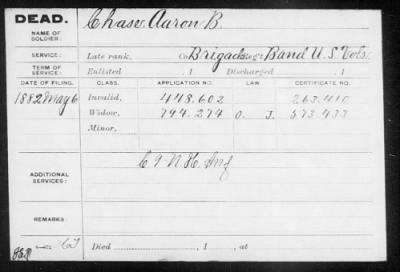 DEAD.
Chase Aaron B.
NAME OF SOLDIER:
SERVICE:
Late rank, Co. Brigade Reg't Band U.S. Vols.
TERM OF SERVICE:
Enlisted , 1 Discharged , 1
DATE OF FILING. CLASS. APPLICATION NO. LAW. CERTIFICATE NO.
1882 May 6 Invalid, 448.602 263.410
Widow, 794.274 O. J. 573.433
Minor,
ADDITIONAL SERVICES:
C 9 N.H. Inf
REMARKS:
Died , 1 , at